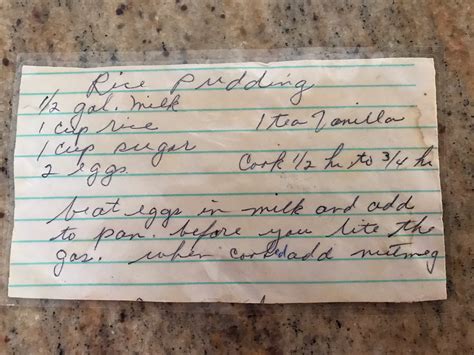 Rice Pudding
1/2 gal. milk
1 cup rice 1 tea Vanilla
1 cup sugar
2 eggs Cook 1/2 hr to 3/4 hr
beat eggs in milk and add
to pan. before you lite the
gas. when cooked add nutmeg